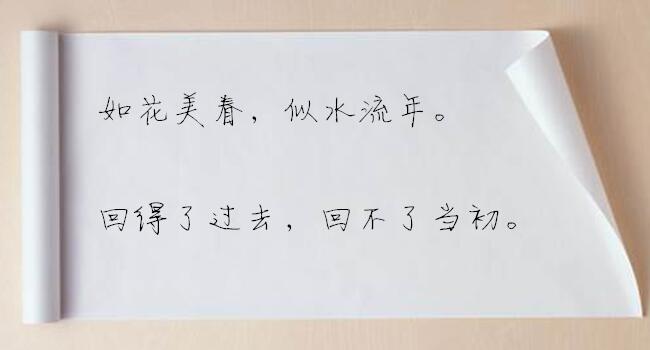 如花美眷，似水流年。
回得了过去，回不了当初。